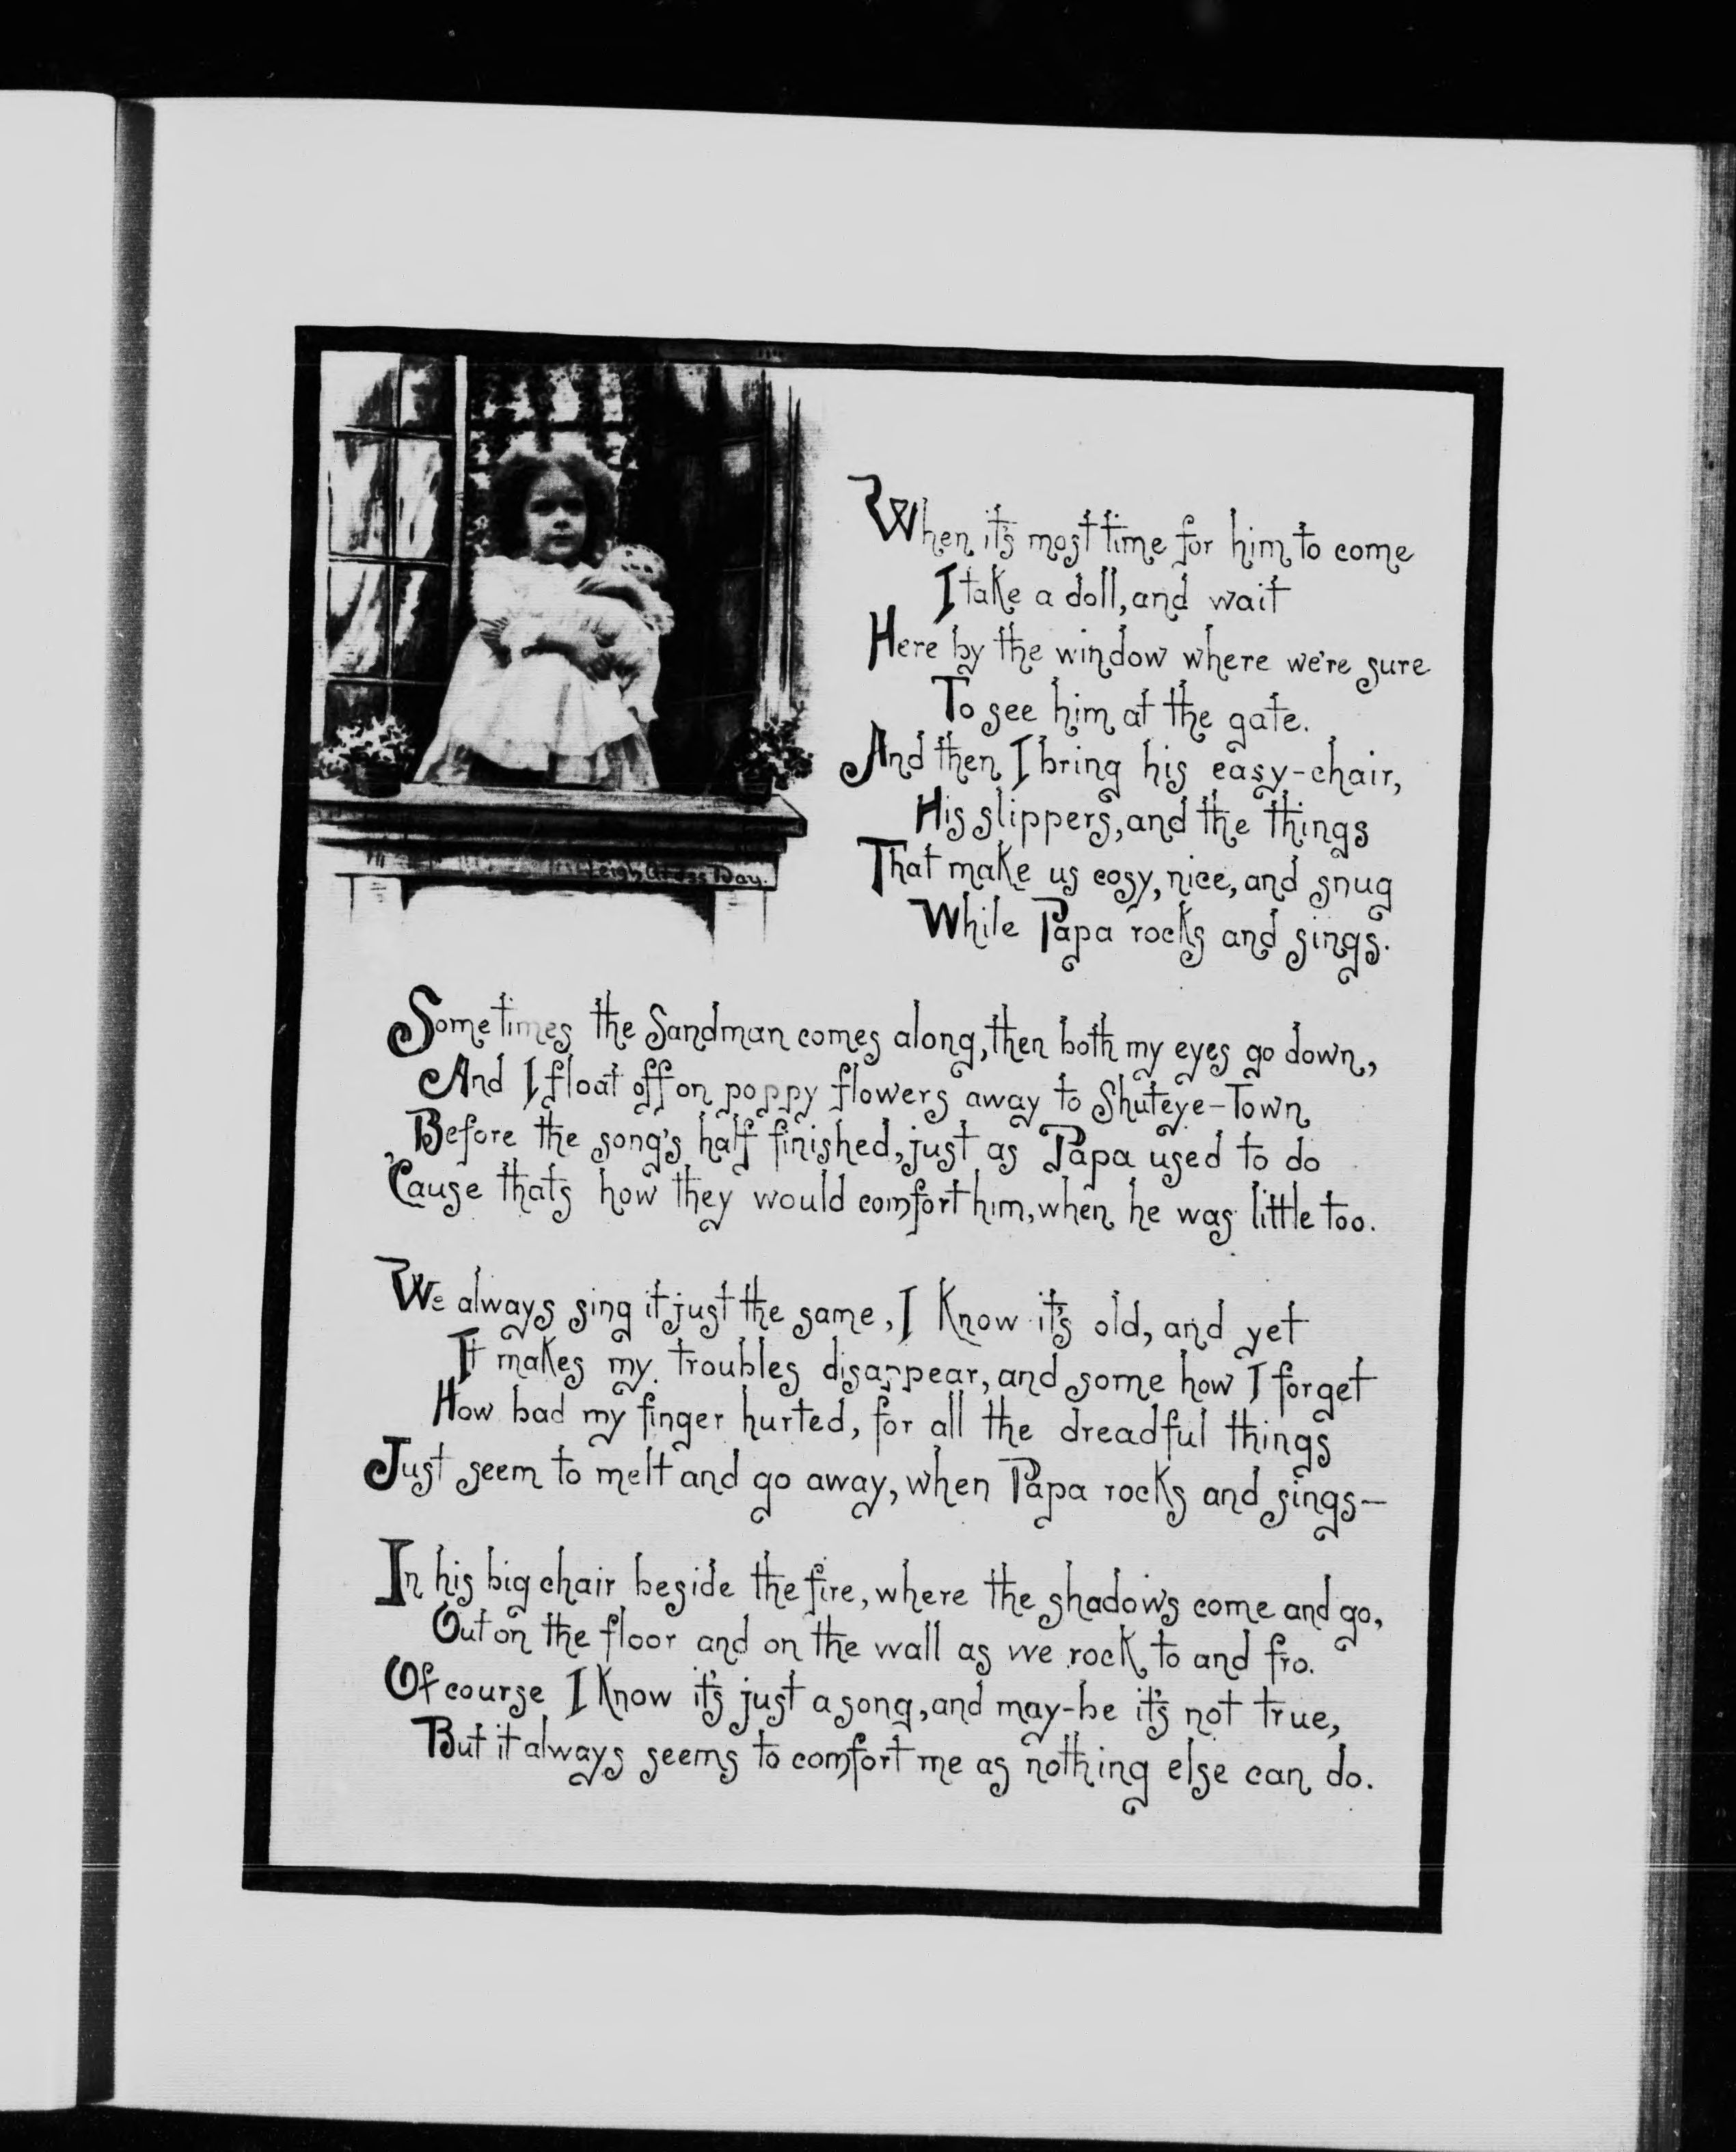 Leigh Gross Day.
When it's most time for him to come
I take a doll, and wait
Here by the window where we're sure
To see him at the gate.
And then I bring his easy-chair,
His slippers, and the things
That make us cosy, nice, and snug
While Papa rocks and sings.
Sometimes the Sandman comes along, then both my eyes go down,
And I float off on poppy flowers away to Shuteye-Town
Before the song's half finished, just as Papa used to do
'Cause thats how they would comfort him, when he was little too.
We always sing it just the same, I Know it's old, and yet
It makes my troubles disappear, and some how I forget
How bad my finger hurted, for all the dreadful things
Just seem to melt and go away, when Papa rocks and sings—
In his big chair beside the fire, where the shadows come and go,
Out on the floor and on the wall as we rock to and fro.
Of course I Know it's just a song, and may-be it's not true,
But it always seems to comfort me as nothing else can do.